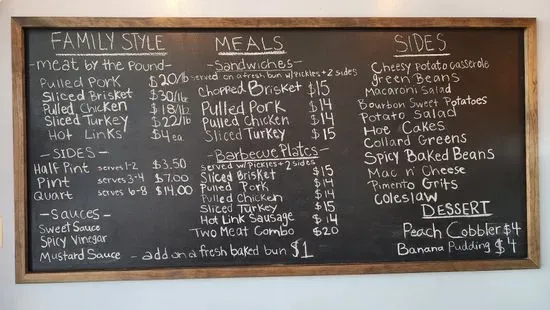 FAMILY STYLE
-meat by the pound-
Pulled Pork $20/lb
Sliced Brisket $30/lb
Pulled Chicken $18/lb
Sliced Turkey $22/lb
Hot Links $4 ea
-SIDES-
Half Pint serves 1-2 $3.50
Pint serves 3-4 $7.00
Quart serves 6-8 $14.00
-Sauces-
Sweet Sauce
Spicy Vinegar
Mustard Sauce
MEALS
-Sandwiches-
served on a fresh bun w/pickles + 2 sides
Chopped Brisket $15
Pulled Pork $14
Pulled Chicken $14
Sliced Turkey $15
-Barbecue Plates-
served w/pickles + 2 sides
Sliced Brisket $15
Pulled Pork $14
Pulled Chicken $14
Sliced Turkey $15
Hot Link Sausage $14
Two Meat Combo $20
- add on a fresh baked bun $1
SIDES
Cheesy Potato casserole
green Beans
Macaroni Salad
Bourbon Sweet Potatoes
Potato Salad
Hoe Cakes
Collard Greens
Spicy Baked Beans
Mac n' Cheese
Pimento Grits
Coleslaw
DESSERT
Peach Cobbler $4
Banana Pudding $4